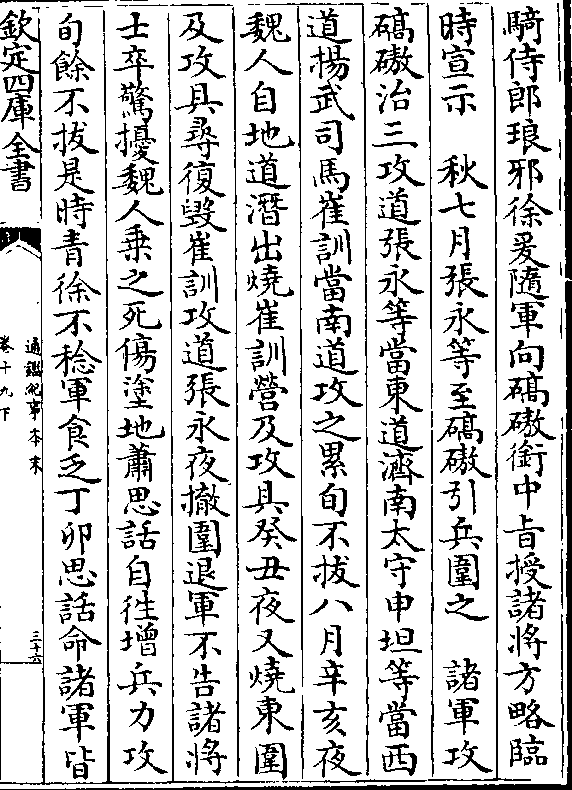 騎侍郎琅邪徐爰隨軍向碻磝銜中旨授諸將方略臨
時宣示　秋七月張永等至碻磝引兵圍之　諸軍攻
碻磝治三攻道張永等當東道濟南太守申坦等當西
道揚武司馬崔訓當南道攻之累旬不拔八月辛亥夜
魏人自地道潛出燒崔訓營及攻具癸丑夜又燒東圍
及攻具尋復毀崔訓攻道張永夜撤圍退軍不告諸將
士卒驚擾魏人乗之死傷塗地蕭思話自徃增兵力攻
旬餘不拔是時青徐不稔軍食乏丁卯思話命諸軍皆
欽定四庫全書
通鑑紀事本末
卷十九下
三十六